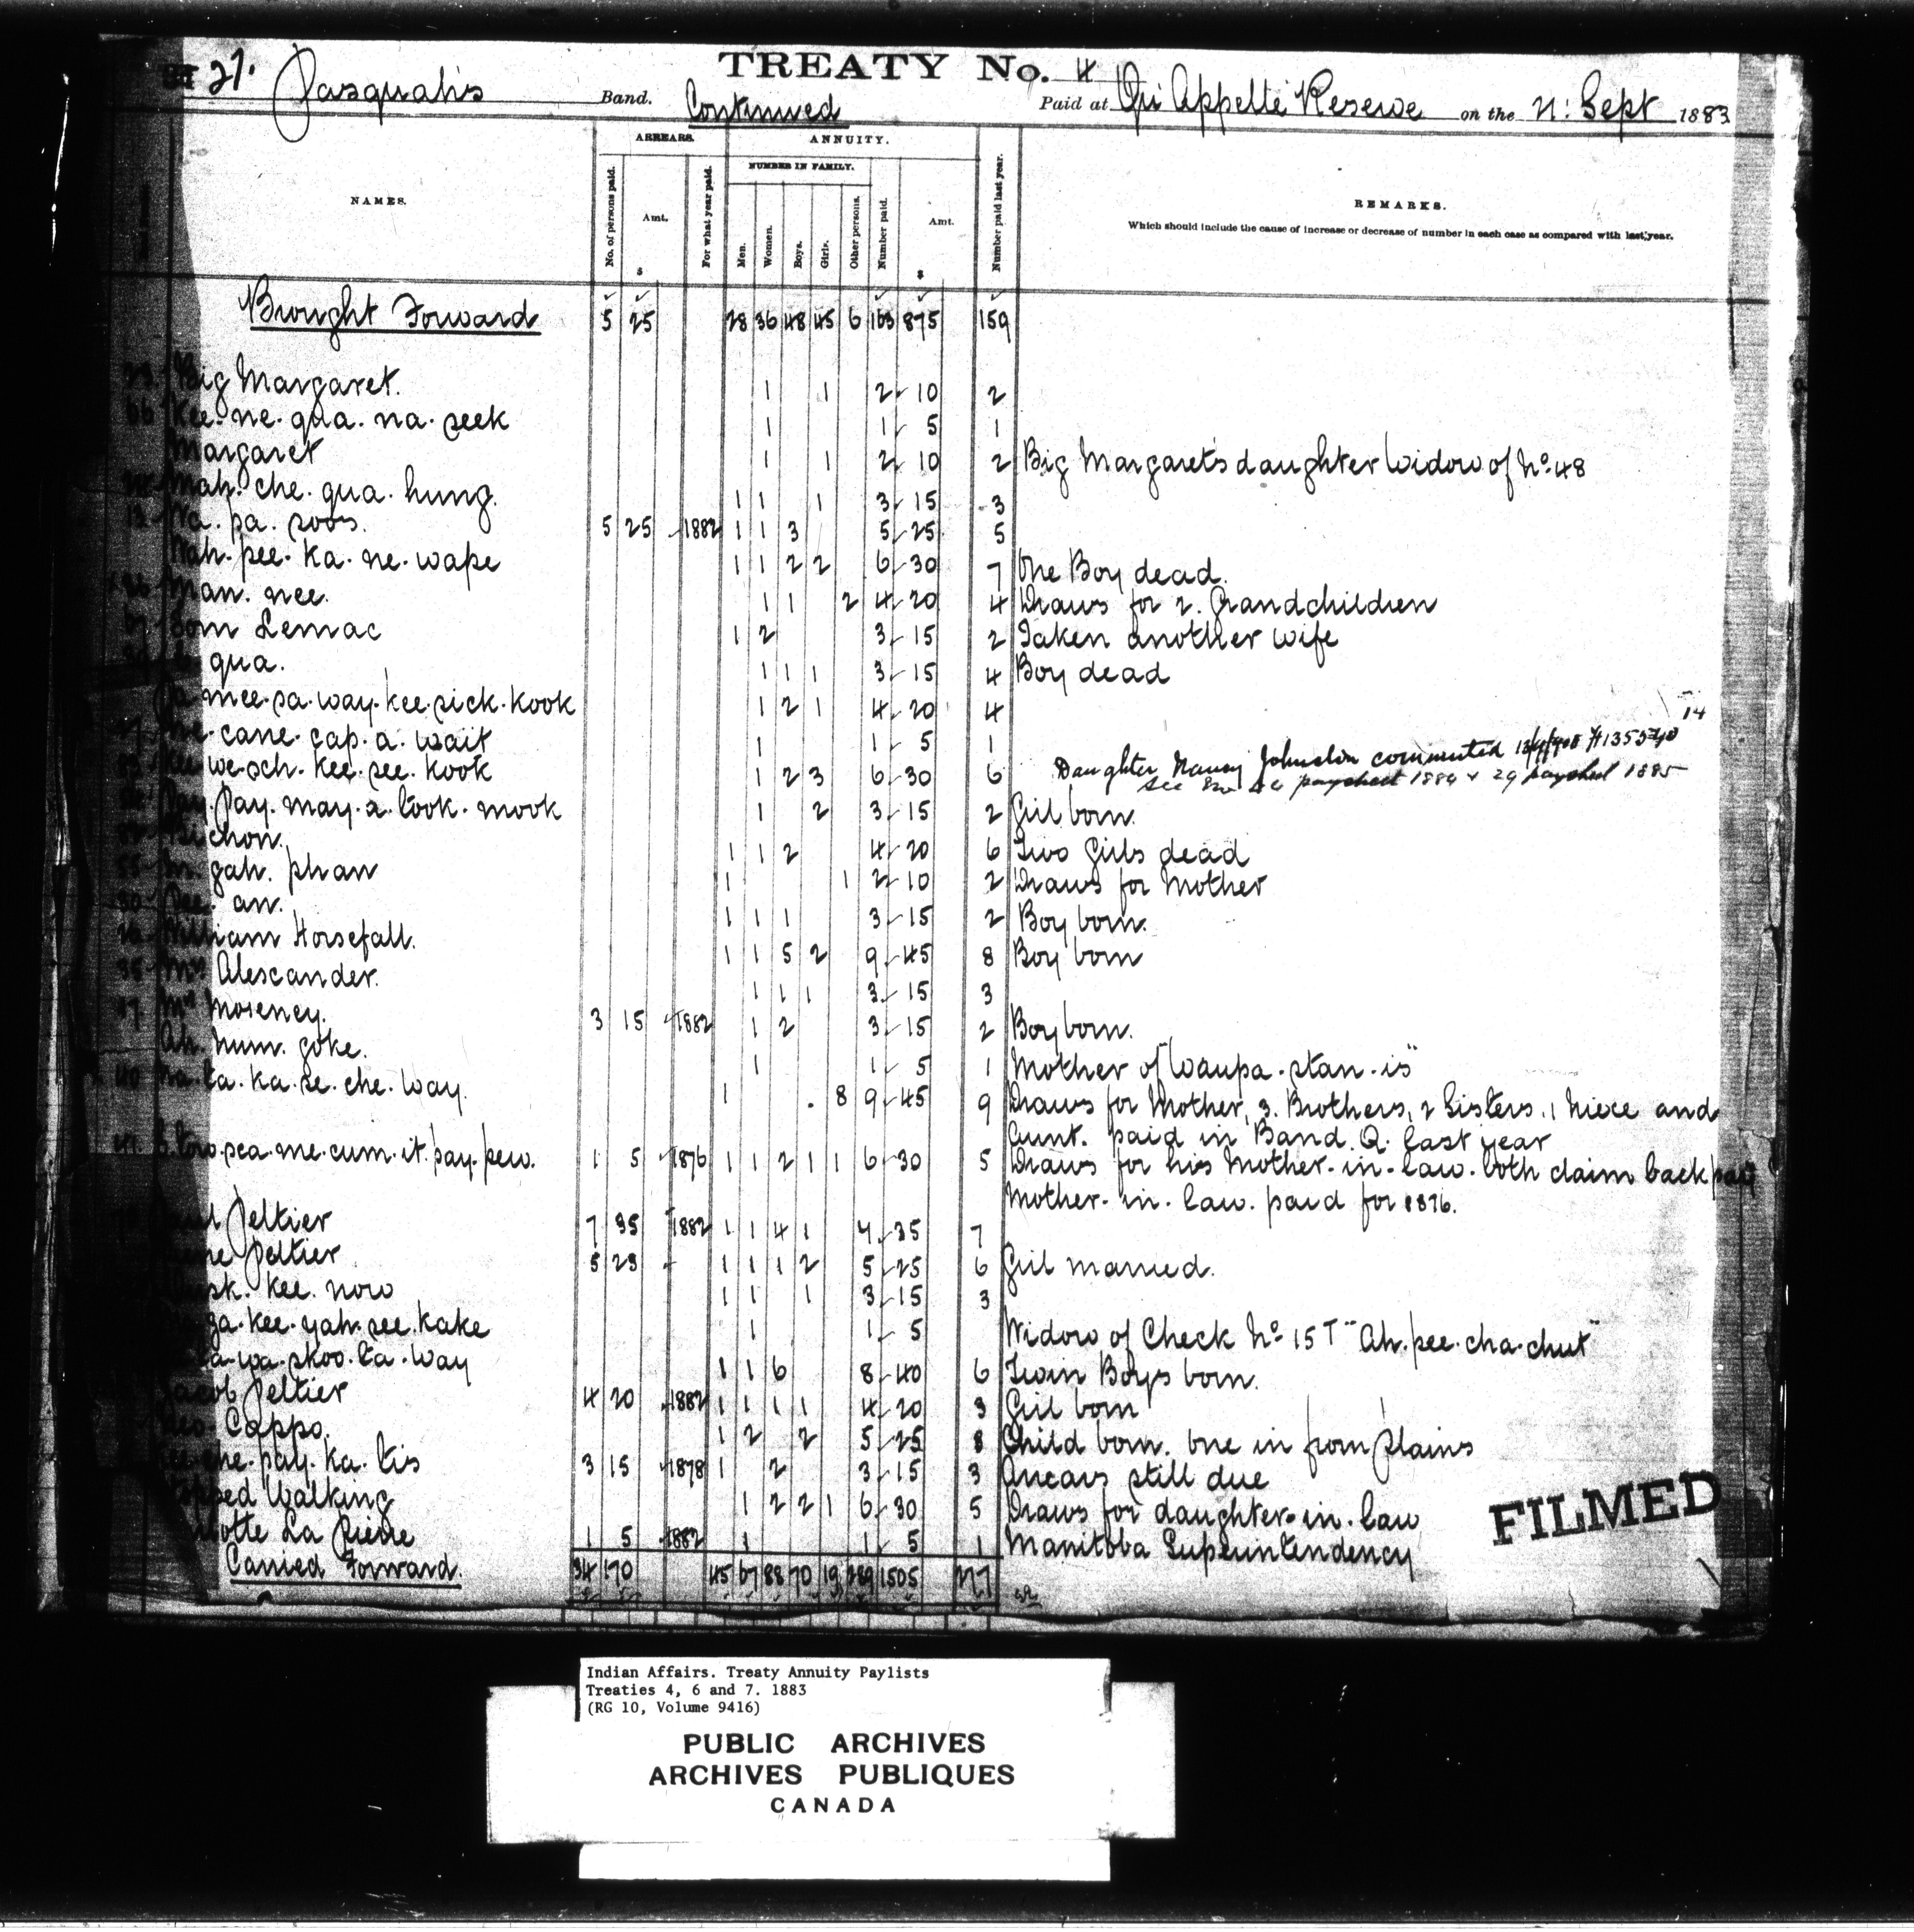 27. Pasquah's Band. Continued
TREATY No. 4
Paid at Qu'Appelle Reserve on the 21: Sept 1883
NAMES.
ARREARS.
No. of persons paid.
Amt.
$
For what year paid.
ANNUITY.
NUMBER IN FAMILY.
Men.
Women.
Boys.
Girls.
Other persons.
Number paid.
Amt.
$
Number paid last year.
REMARKS.
Which should include the cause of increase or decrease of number in each case as compared with last year.
Brought Forward 5 25 28 36 48 45 6 163 875 159
Big Margaret. 1 1 2 10 2
Kee. ne. qua. na. seek 1 1 5 1
Margaret 1 1 2 10 2 Big Margaret's daughter Widow of No. 48
Mah. che. qua. hung. 1 1 1 3 15 3
Wa. pa. soos. 5 25 1882 1 1 3 5 25 5
Wah. pee. ka. ne. wape 1 1 2 2 6 30 7 One Boy dead.
Man. nee. 1 1 2 4 20 4 Draws for 2. Grandchildren
Tom Lemac 1 2 3 15 2 Taken another wife
qua. 1 1 1 3 15 4 Boy dead
mee. sa. way. kee. sick. kook 1 2 1 4 20 4
cane. cap. a. wait 1 1 5 1
we. sch. kee. see. kook 1 2 3 6 30 6 Daughter Nancy Johnston commuted
paysheet 1884 & 29 paysheet 1885
Pay. may. a. took. mook 1 2 3 15 2 Girl born.
chon. 1 1 2 4 20 6 Two Girls dead
gah. phan 1 1 2 10 2 Draws for Mother
an. 1 1 1 3 15 2 Boy born.
William Horsefall. 1 1 5 2 9 45 8 Boy born
Mrs Alescander. 1 1 1 3 15 3
Mrs Moreney. 3 15 1882 1 2 3 15 2 Boy born.
Ah. hum. goke. 1 1 5 1 Mother of "Waupa. stan. is"
ta. ka. se. che. way. 1 8 9 45 9 Draws for Mother, 3. Brothers, 2 Sisters, 1 Niece and
Aunt. paid in Band Q. last year
sea. me. cum. it. pay. pew. 1 5 1876 1 1 2 1 1 6 30 5 Draws for his Mother-in-law. both claim back pay
Mother-in-law. paid for 1876.
Paul Peltier 7 35 1882 1 1 4 1 7 35 7
Peltier 5 25 1 1 1 2 5 25 6 Girl married.
kee. now 1 1 1 3 15 3
kee. yah. see. kake 1 1 5 Widow of Check No 15 T "Ah. pee. cha. chut"
wa. skoo. ta. way 1 1 6 8 40 6 Twin Boys born.
Jacob Peltier 4 20 1882 1 1 1 1 4 20 3 Girl born
Cappo. 1 2 2 5 25 8 Child born. One in from Plains
che. pay. ka. tis 3 15 1878 1 2 3 15 3 Arrears still due
Walking 1 2 2 1 6 30 5 Draws for daughter-in-law
La Pierre 1 5 1882 1 1 5 1 Manitoba Superintendency
Carried Forward. 34 170 45 67 88 70 19 289 1505 277
FILMED
Indian Affairs. Treaty Annuity Paylists
Treaties 4, 6 and 7. 1883
(RG 10, Volume 9416)
PUBLIC ARCHIVES
ARCHIVES PUBLIQUES
CANADA